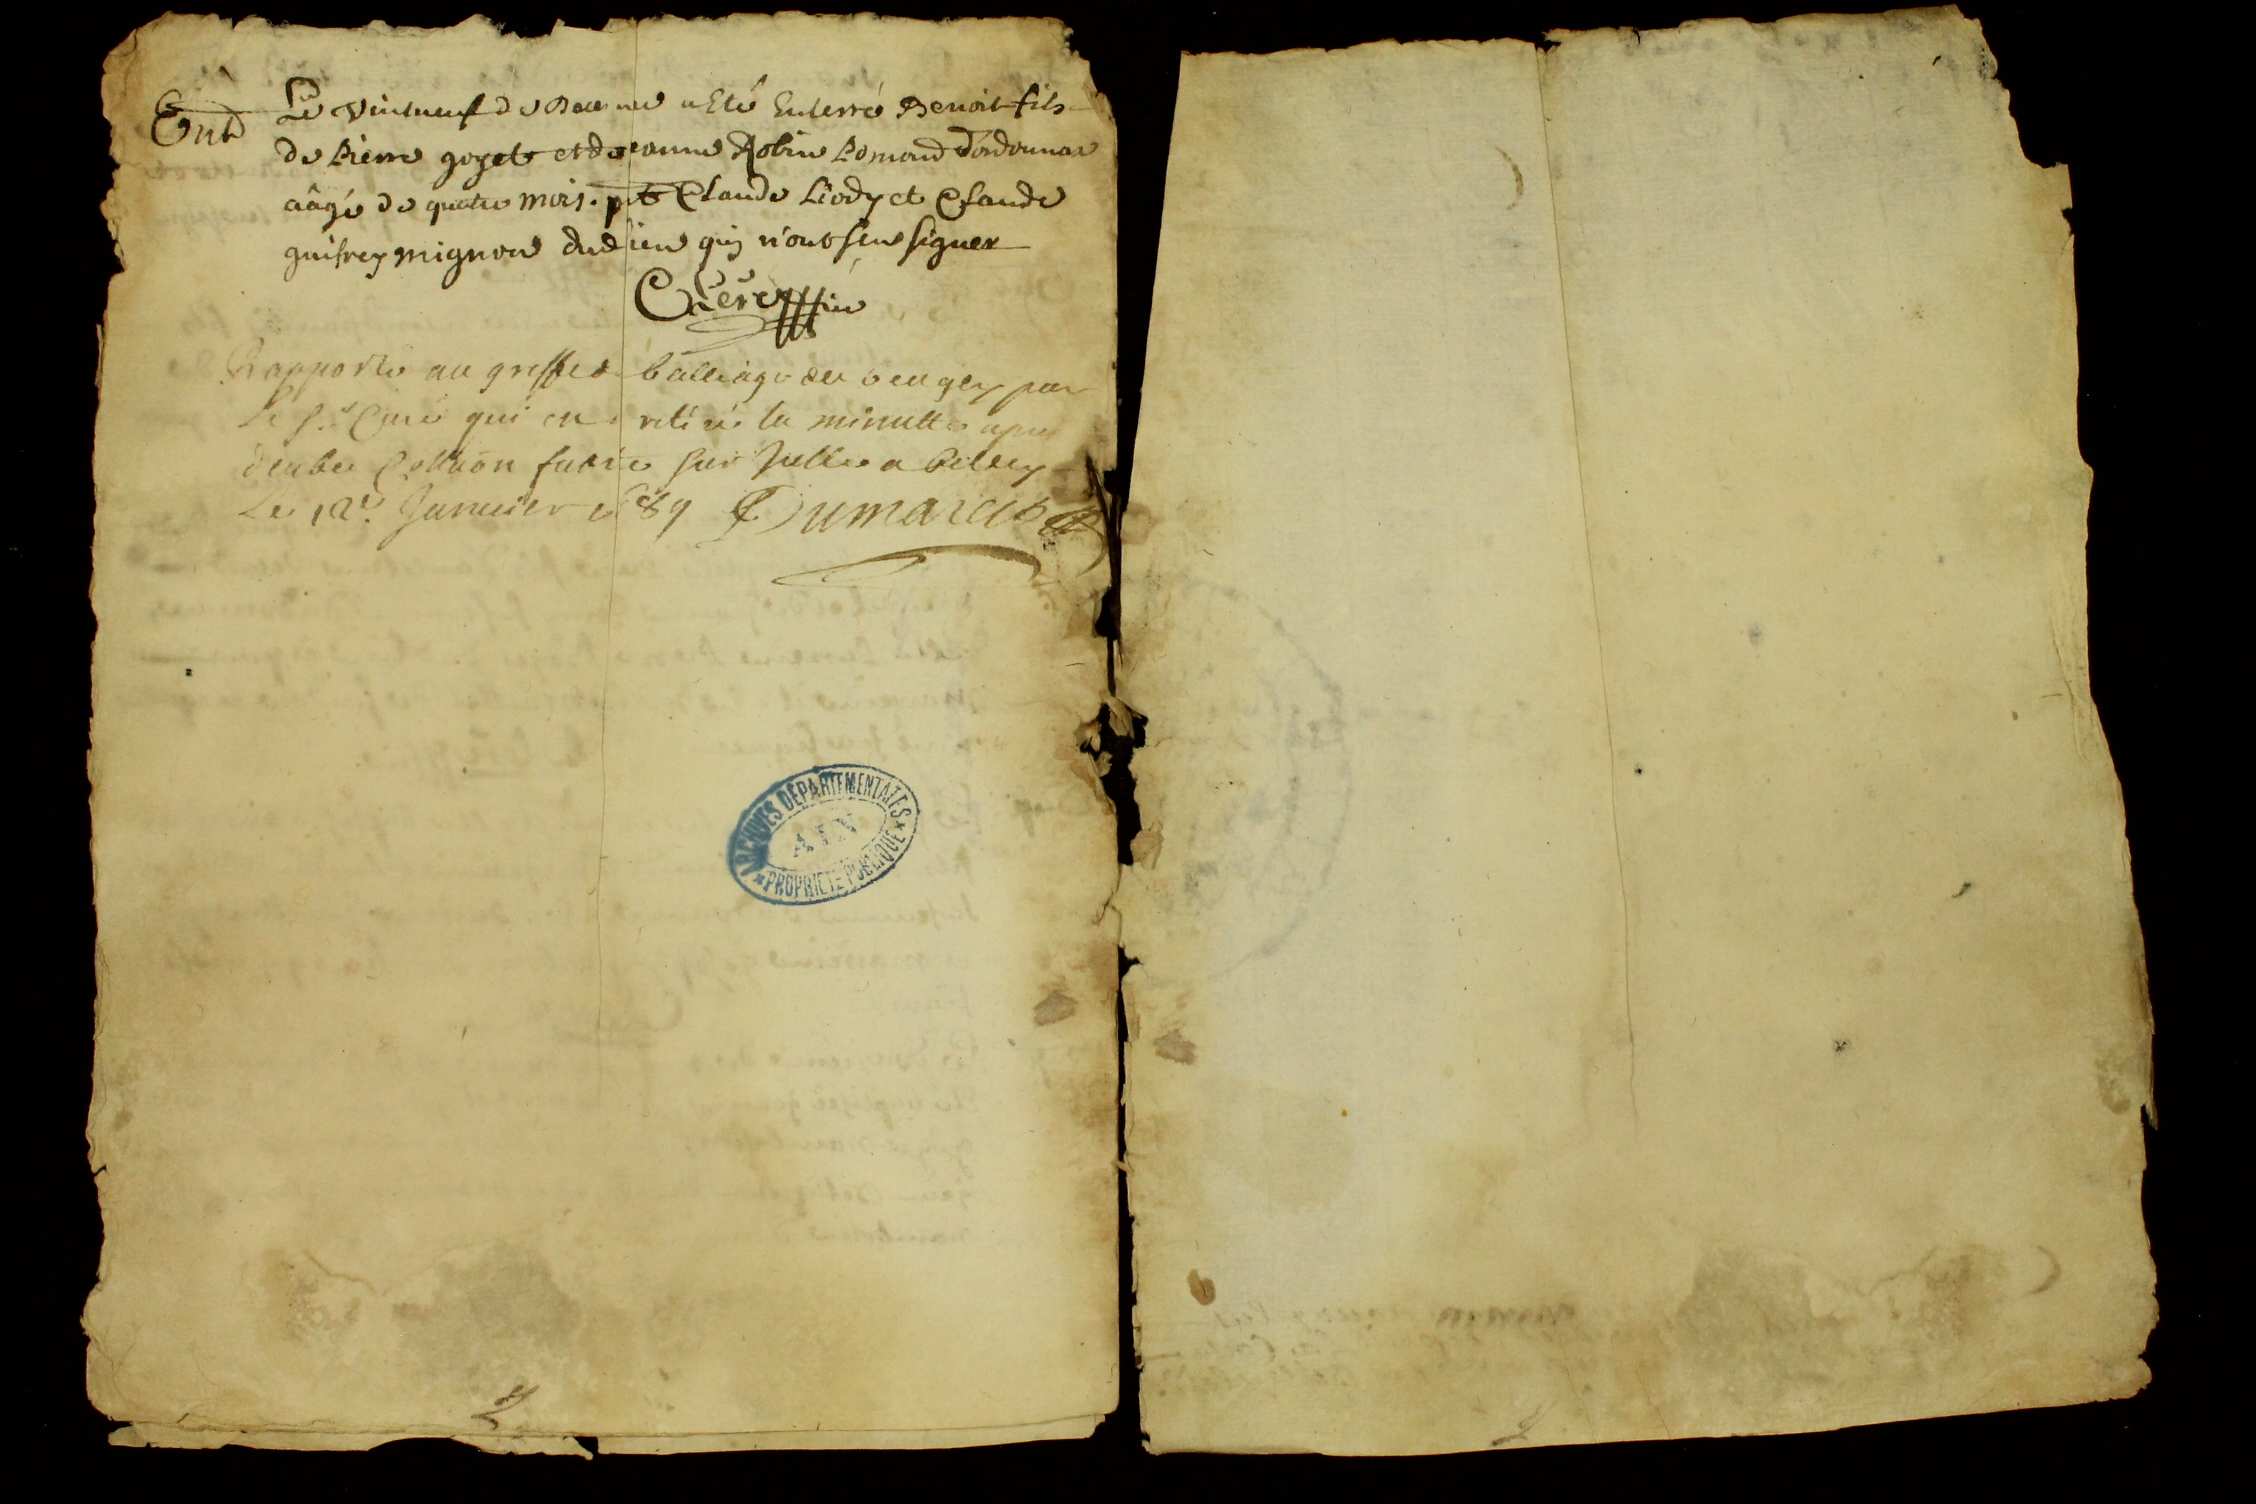 Ent
Le vintneuf de Decembre a Eté Enterré Benoit fils
de Pierre goyet et de jeanne Robin d'ordonnax
aâgé de quatre mois. pnts Claude Liody et Claude
guifrey mignon dud lieu qui n'ont seu signer
Rapporté au greffe du balliage de beugey par
le Sr Curé qui en a retiré la minutte apres
deube Collaôn faitte sur Jcelle a belley
Le 12e Januier 1689 Dumarest
ARCHIVES DEPARTEMENTALES
AIN
PROPRIETE PUBLIQUE